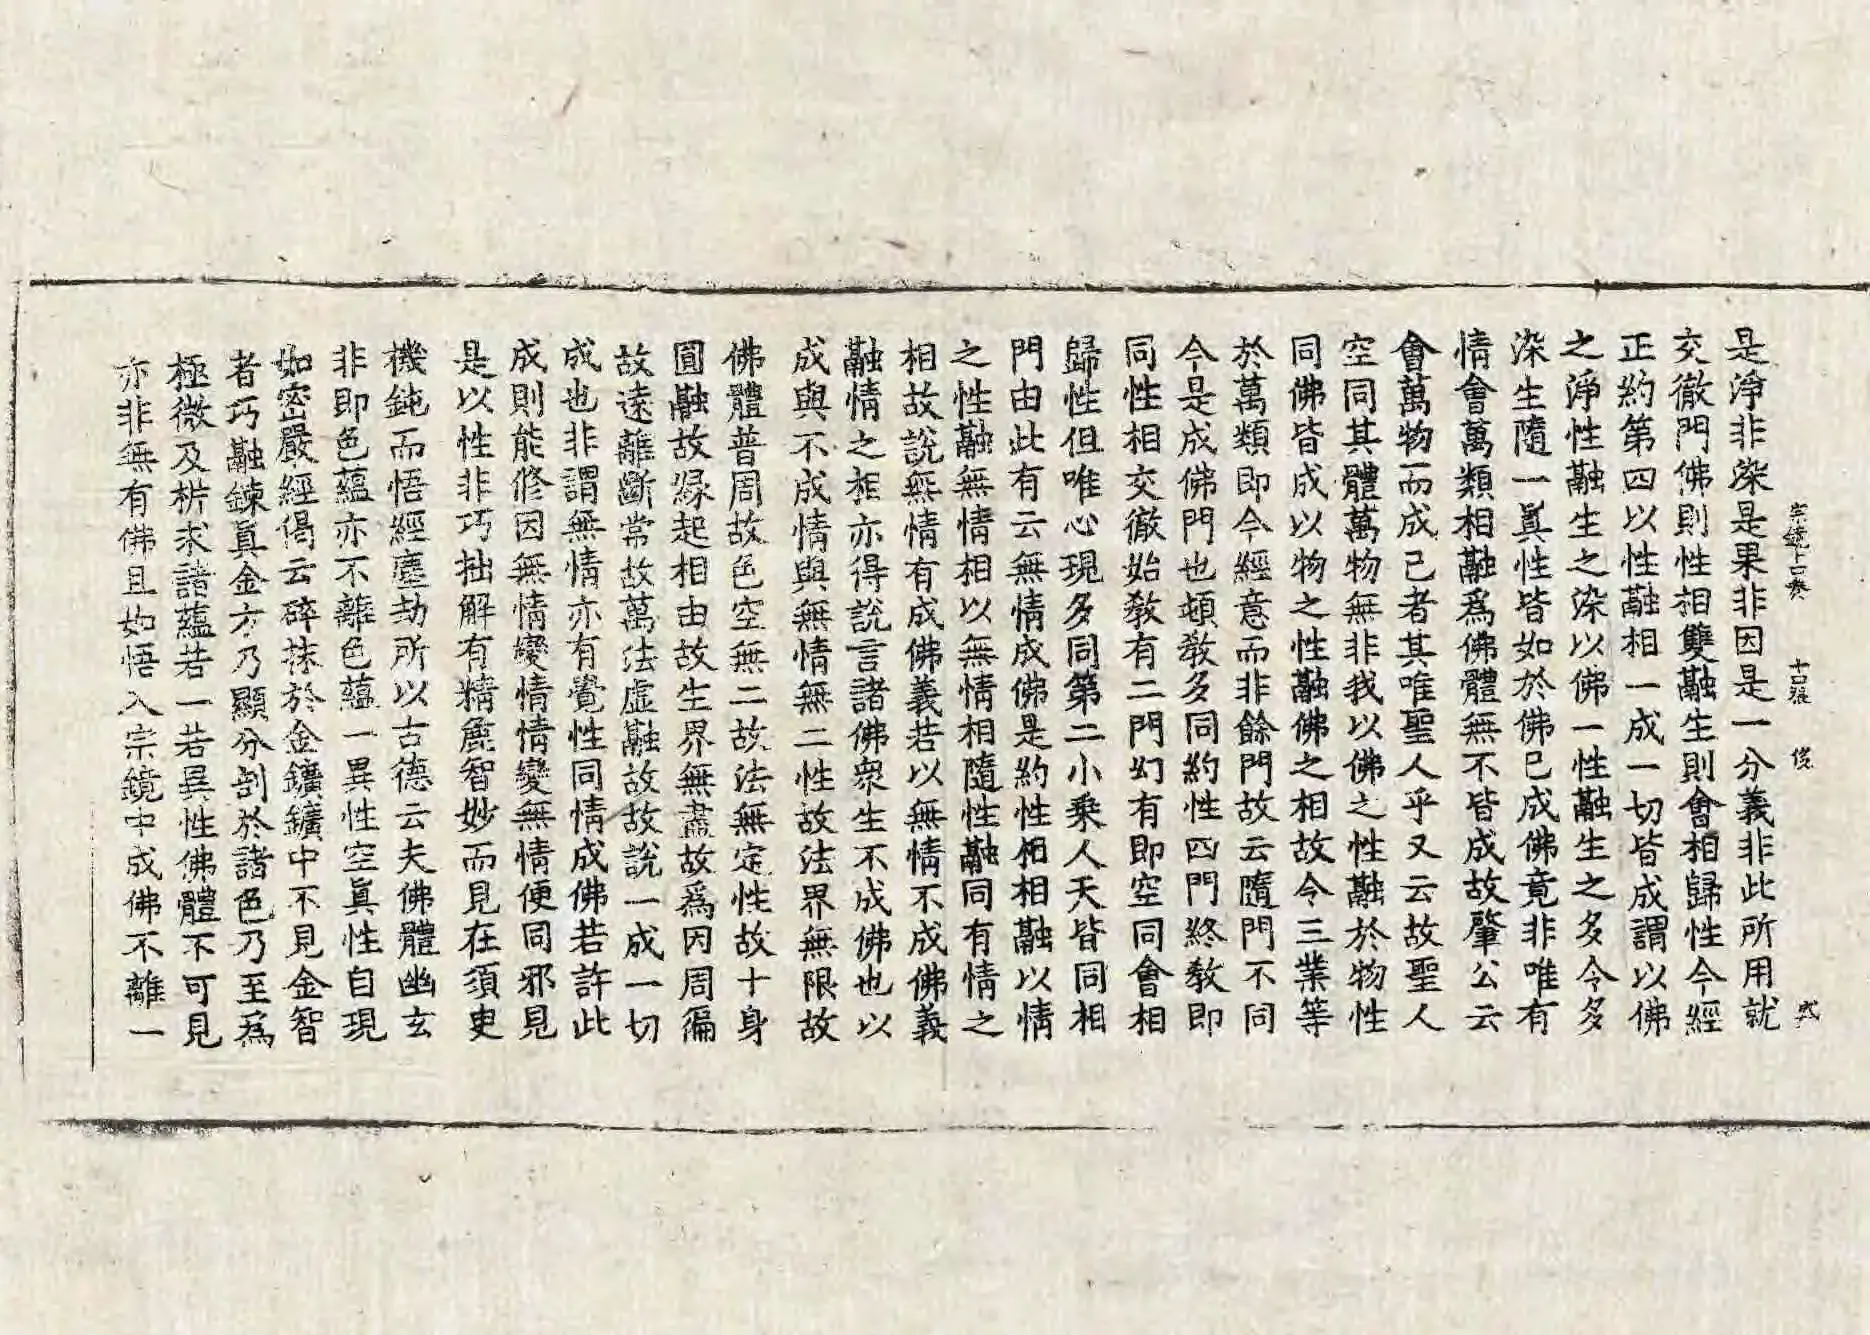 是淨非染是果非因是一分義非此所用就
交徹門佛則性相雙融生則會相歸性今經
正約第四以性融相一成一切皆成謂以佛
之淨性融生之染以佛一性融生之多令多
染生隨一眞性皆如於佛已成佛竟非唯有
情會萬類相融爲佛體無不皆成故肇公云
會萬物而成己者其唯聖人乎又云故聖人
空同其體萬物無非我以佛之性融於物性
同佛皆成以物之性融佛之相故令三業等
於萬類即今經意而非餘門故云隨門不同
今是成佛門也頓敎多同約性四門終敎即
同性相交徹始敎有二門幻有即空同會相
歸性但唯心現多同第二小乘人天皆同相
門由此有云無情成佛是約性相相融以情
之性融無情相以無情相隨性融同有情之
相故說無情有成佛義若以無情不成佛義
融情之相亦得說言諸佛衆生不成佛也以
成與不成情與無情無二性故法界無限故
佛體普周故色空無二故法無定性故十身
圓融故緣起相由故生界無盡故爲因周徧
故遠離斷常故萬法虛融故故說一成一切
成也非謂無情亦有覺性同情成佛若許此
成則能修因無情變情情變無情便同邪見
是以性非巧拙解有精麁智妙而見在須臾
機鈍而悟經塵劫所以古德云夫佛體幽玄
非即色蘊亦不離色蘊一異性空眞性自現
如密嚴經偈云碎抹於金鑛鑛中不見金智
者巧融鍊眞金方乃顯分剖於諸色乃至爲
極微及析求諸蘊若一若異性佛體不可見
亦非無有佛且如悟入宗鏡中成佛不離一